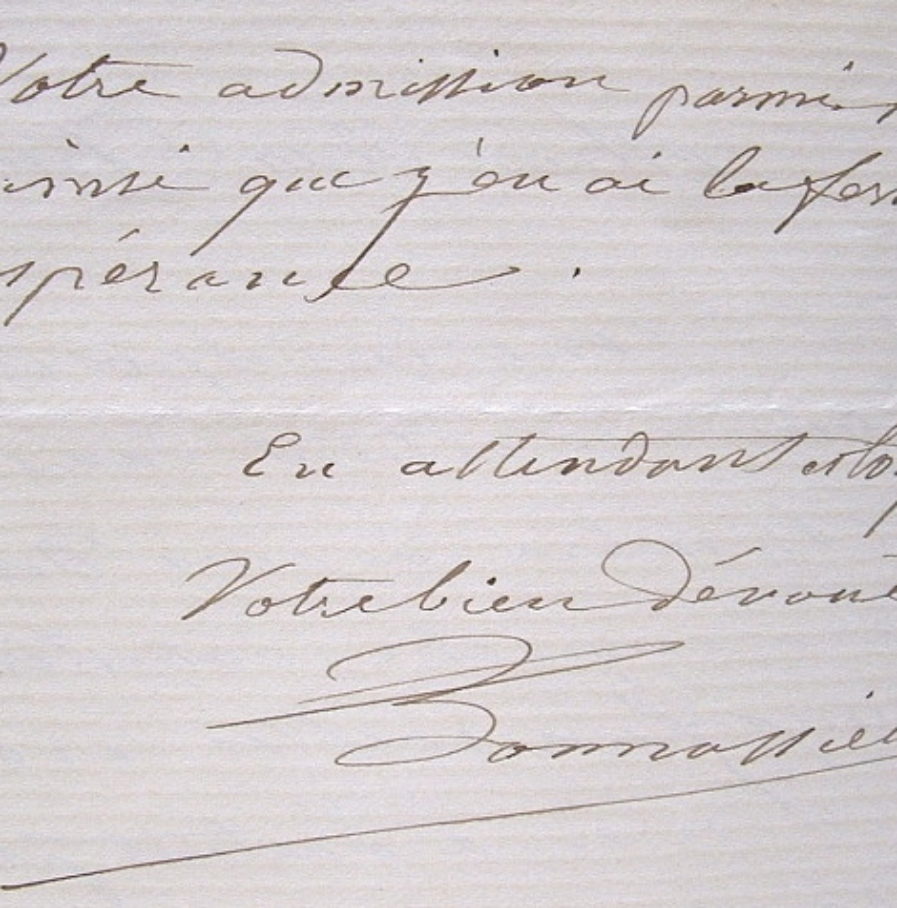 Votre admission parmi
ainsi que j'en ai la fer
espérance.
En attendant
Votre bien dévoué
Bonnassieu